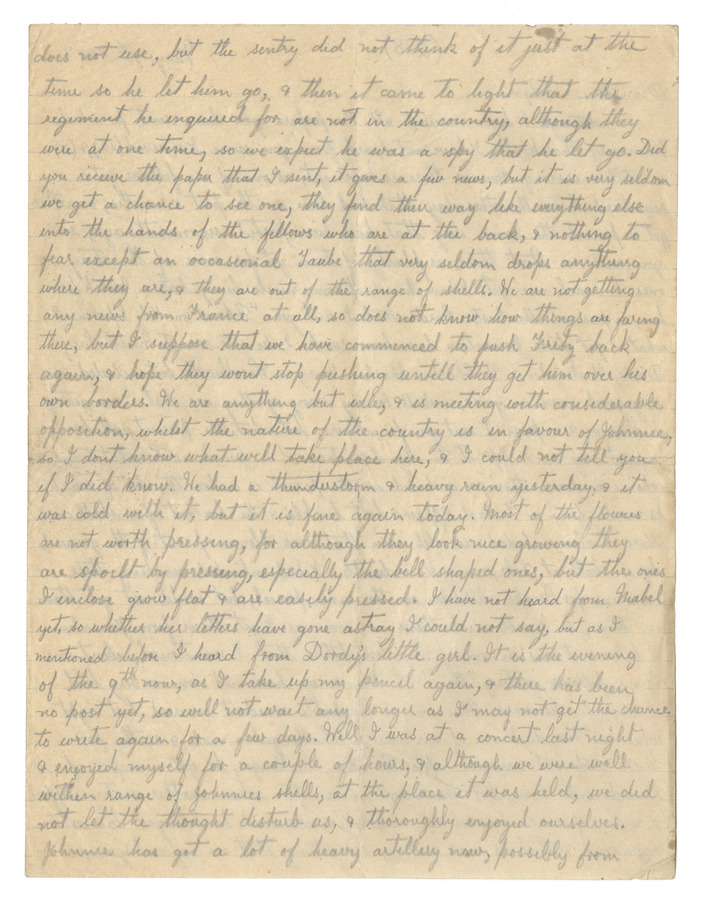 does not use, but the sentry did not think of it just at the
time so he let him go, & then it came to light that the
regiment he inquired for are not in the country, although they
were at one time, so we expect he was a spy that he let go. Did
you receive the paper that I sent, it gives a few news, but it is very seldom
we get a chance to see one, they find their way like everything else
into the hands of the fellows who are at the back, & nothing to
fear except an occasional Taube that very seldom drops anything
where they are, & they are out of the range of shells. We are not getting
any news from France at all, so does not know how things are faring
there, but I suppose that we have commenced to push Fritz back
again, & hope they wont stop pushing untill they get him over his
own borders. We are anything but idle, & is meeting with considerable
opposition, whilst the nature of the country is in favour of Johnnie,
so I dont know what will take place here, & I could not tell you
if I did know. We had a thunderstorm & heavy rain yesterday, & it
was cold with it, but it is fine again today. Most of the flowers
are not worth pressing, for although they look nice growing they
are spoilt by pressing, especially the bell shaped ones, but the ones
I inclose grow flat & are easily pressed. I have not heard from Mabel
yet, so whether her letters have gone astray I could not say, but as I
mentioned before I heard from Dordy's little girl. It is the evening
of the 9th now, as I take up my pencil again, & there has been
no post yet, so will not wait any longer as I may not get the chance
to write again for a few days. Well I was at a concert last night
& enjoyed myself for a couple of hours, & although we were well
within range of Johnnies shells, at the place it was held, we did
not let the thought disturb us, & thoroughly enjoyed ourselves.
Johnnie has got a lot of heavy artillery now, possibly from